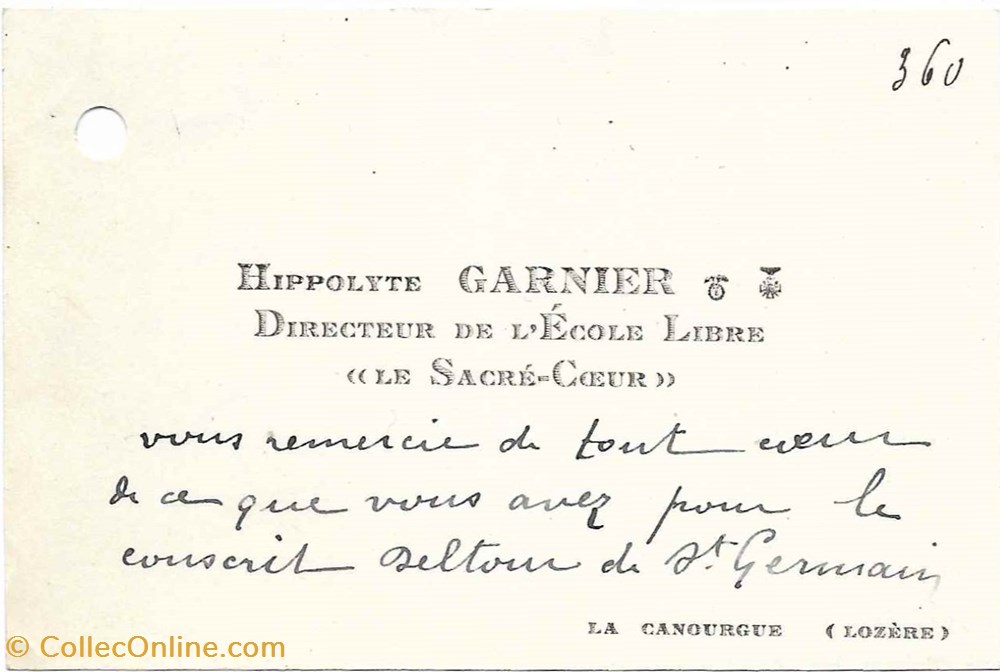 360
HIPPOLYTE GARNIER
DIRECTEUR DE L'ÉCOLE LIBRE
«LE SACRÉ-CŒUR»
vous remercie de tout cœur
de ce que vous avez pour le
conscrit Deltour de St. Germain
LA CANOURGUE (LOZÈRE)
© CollecOnline.com